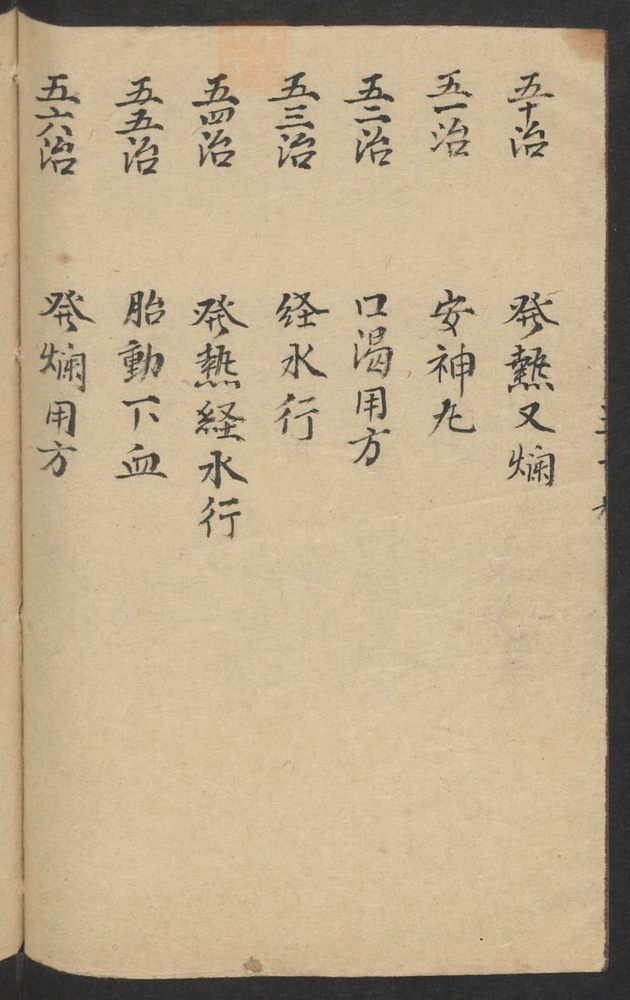 五十治 発熱又爛
五一治 安神丸
五二治 口渇用方
五三治 経水行
五四治 発熱経水行
五五治 胎動下血
五六治 発爛用方